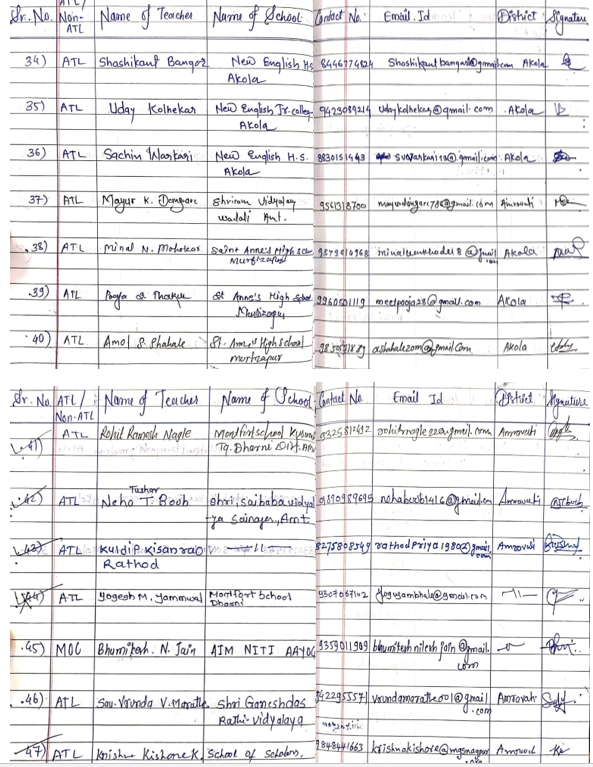 ATL/
Sr. No. Non-ATL Name of Teacher Name of School Contact No. Email. Id District Signature
34) ATL Shashikant Bangar New English Hs Akola 8446774824 Shashikant bangar@gmail.com Akola
35) ATL Uday Kolhekar New English Jr. college Akola 9423089214 udaykolhekar@gmail.com Akola
36) ATL Sachin Warkari New English H.S. Akola 8830151443 @gmail.com Akola
37) ATL Mayur K. Dongare Shriram Vidyalay wadali Amt. 9561318700 @gmail.com Amravati
38) ATL Minal N. Mohokar Saint Anne's High School Murtizapur @gmail.com Akola
39) ATL Pooja Thakur St Anne's High School Murtizapur meetpooja28@gmail.com Akola
40) ATL Amol S. Shahale St. Anne's High school murtizapur ashahalezom@gmail.com Akola
Sr. No ATL/Non-ATL Name of Teacher Name of School Contact No. Email Id District Signature
41) ATL Rohit Ramesh Nagle Montfort school Tq. Dharni Dist. @gmail.com Amravati
42) ATL Neha Tushar T. Boob Shri, saibaba vidyalaya Sainagar, Amt nehaboob1416@gmail.com Amravati
43) ATL Kuldip Kisanrao Rathod —11— 8275808549 rathodpriya1980@gmail.com Amravati
44) ATL Yogesh M. Jammwal Montfort School Dharni 9307067102 @gmail.com —11—
45) MOC Bhumitesh. N. Jain AIM NITI AAYOG 9359011909 bhumitesh nilesh jain@gmail.com
46) ATL Sau. Vrunda V. Marathe Shri Ganeshdas Rathi Vidyalaya 942295557 vrundamarathe001@gmail.com Amravati
47) ATL Krishna Kishore K. School of scholars. 9848441663 krishnakishore@mgsnagpur Amravati